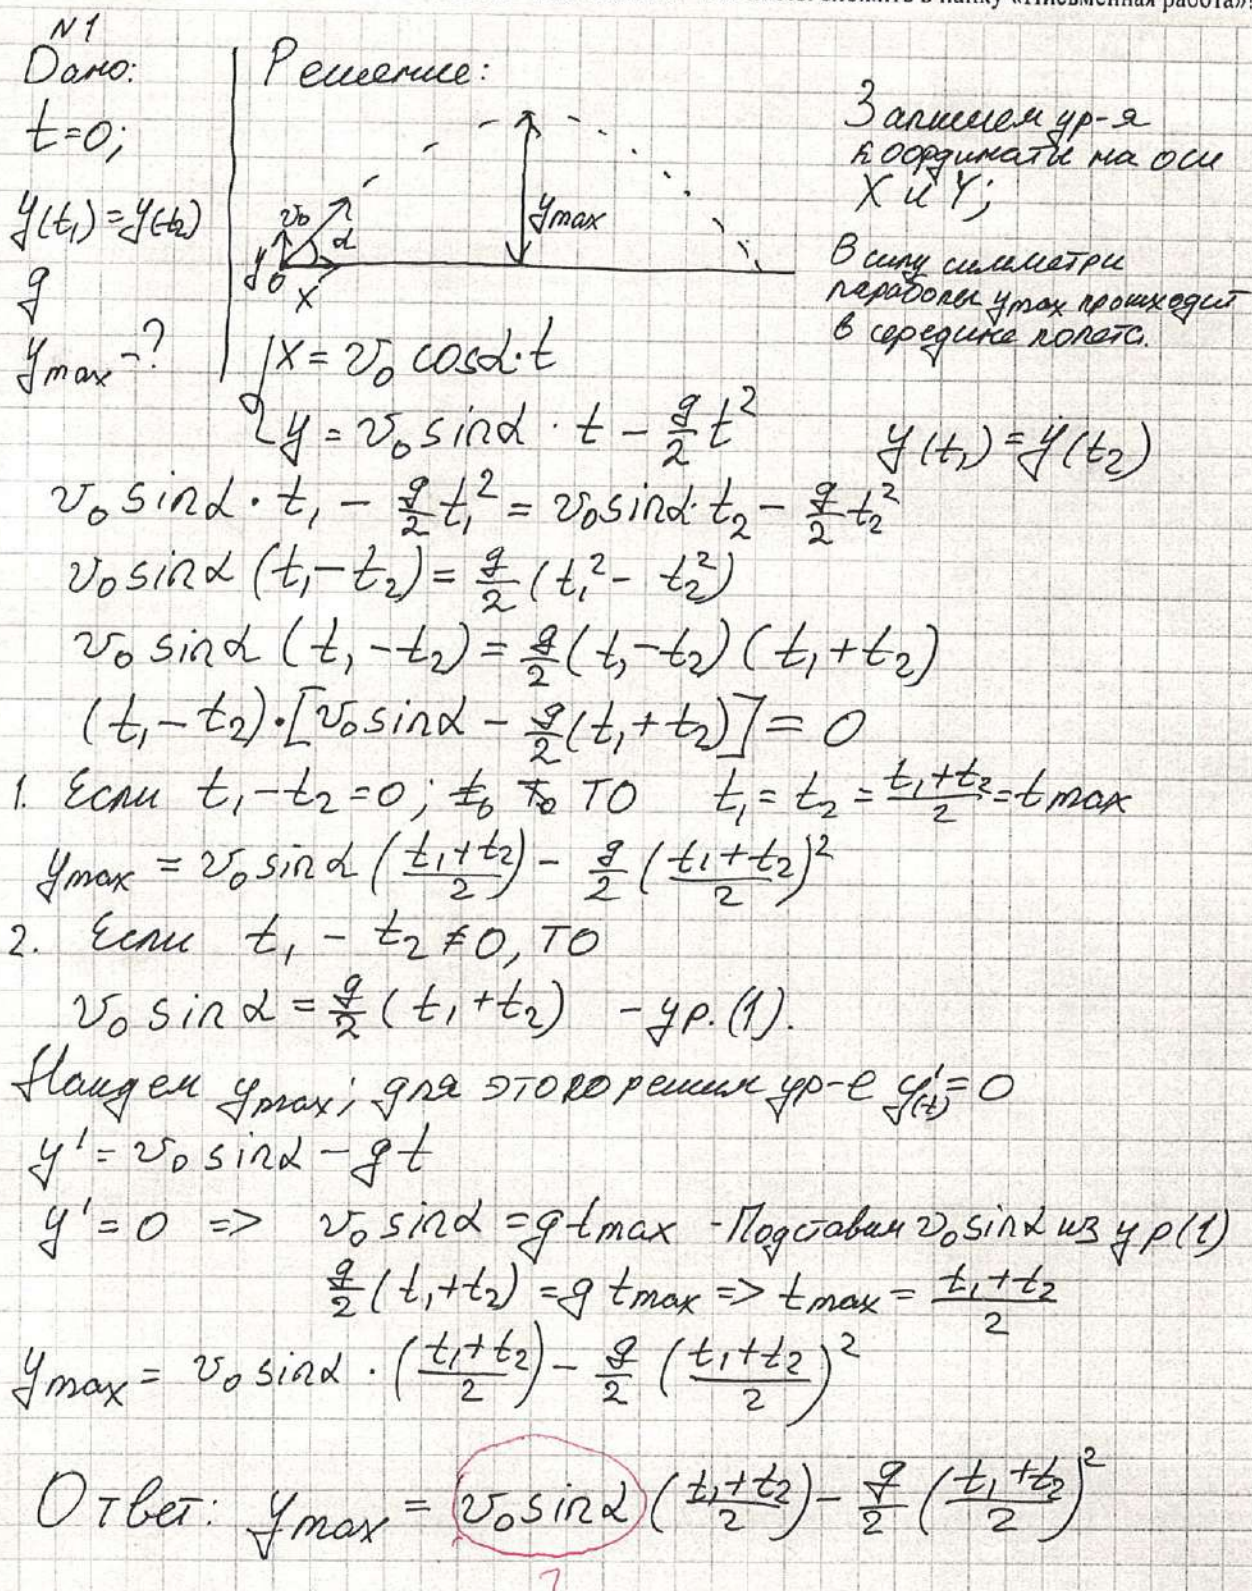 в папку «Письменная работа»
N1
Дано:
t=0;
y(t₁)=y(t₂)
g
y_max -?
Решение:
v₀
α
y
0
X
y_max
Запишем ур-я
координаты на оси
X и Y;
В силу симметри
параболы y_max происходит
в середине полета.
{ X = v₀ cosα·t
{ y = v₀ sinα · t - g/2 t²
y(t₁) = y(t₂)
v₀ sinα · t₁ - g/2 t₁² = v₀ sinα· t₂ - g/2 t₂²
v₀ sinα (t₁-t₂) = g/2 (t₁² - t₂²)
v₀ sinα (t₁-t₂) = g/2 (t₁-t₂) (t₁+t₂)
(t₁-t₂)·[v₀ sinα - g/2 (t₁+t₂)] = 0
1. Если t₁-t₂=0; то t₁ = t₂ = (t₁+t₂)/2 = t max
y_max = v₀ sinα ((t₁+t₂)/2) - g/2 ((t₁+t₂)/2)²
2. Если t₁ - t₂ ≠ 0, то
v₀ sinα = g/2 (t₁+t₂) - ур. (1).
Найдем y_max; для этого решим ур-е y'(t)=0
y' = v₀ sinα - gt
y' = 0 => v₀ sinα = g t max - Подставим v₀ sinα из ур(1)
g/2 (t₁+t₂) = g t max => t max = (t₁+t₂)/2
y_max = v₀ sinα · ((t₁+t₂)/2) - g/2 ((t₁+t₂)/2)²
Ответ: y_max = v₀ sinα ((t₁+t₂)/2) - g/2 ((t₁+t₂)/2)²
?